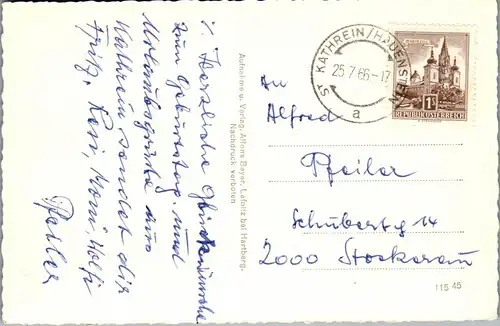 V. Herzliche Glückwünsche
zum Geburtstag. und
Urlaubsgrüße aus
Kathrein sendet dir
Fritz, Resi, Moni, Wolfi
Pfeiler
Aufnahme u. Verlag, Alfons Bayer, Lafnitz bei Hartberg.
Nachdruck verboten
ST. KATHREIN/HAUENSTEIN
25.7.66-17
a
MARIAZELL
1S
REPUBLIK ÖSTERREICH
An
Alfred
Pfeiler
Schubertg 14
2000 Stockerau
115 45